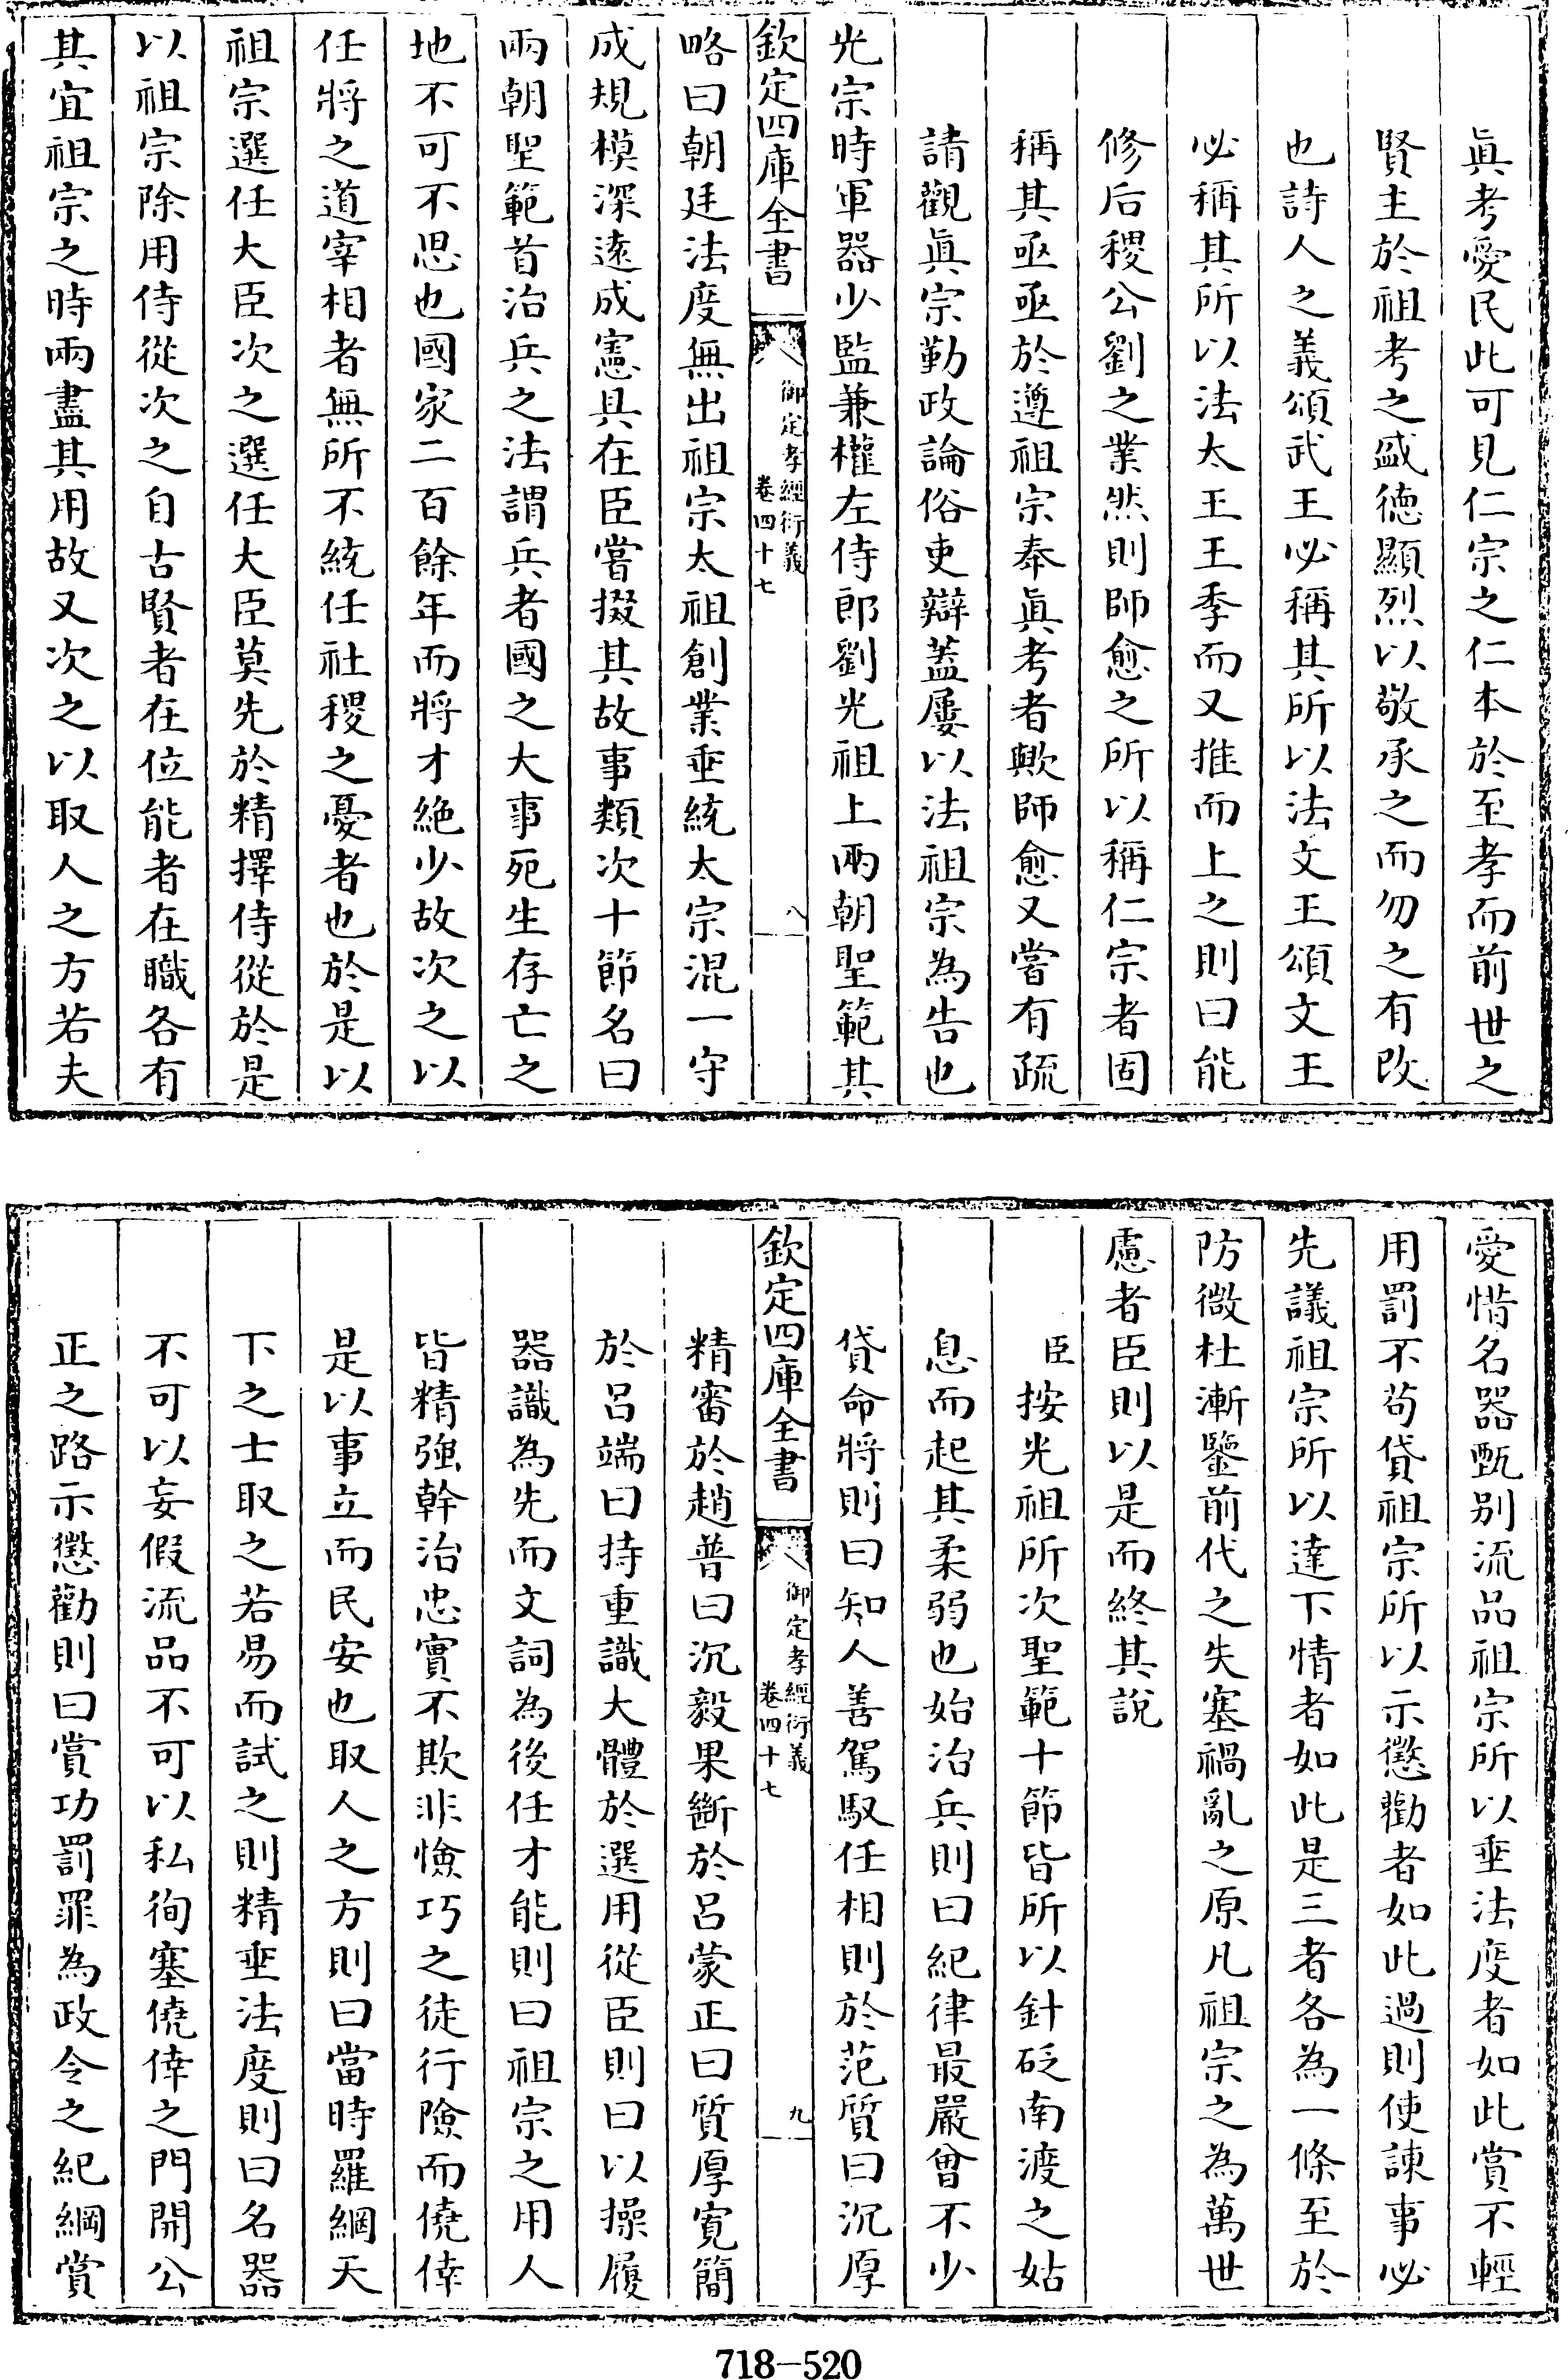 真考愛民此可見仁宗之仁本於至孝而前世之
賢主於祖考之盛德顯烈以敬承之而勿之有改
也詩人之義頌武王必稱其所以法文王頌文王
必稱其所以法太王王季而又推而上之則曰能
修后稷公劉之業然則師愈之所以稱仁宗者固
稱其亟亟於遵祖宗奉真考者歟師愈又嘗有疏
請觀真宗勤政論俗吏辯蓋屢以法祖宗為告也
光宗時軍器少監兼權左侍郎劉光祖上兩朝聖範其
欽定四庫全書
御定孝經衍義
卷四十七
八
略曰朝廷法度無出祖宗太祖創業垂統太宗混一守
成規模深遠成憲具在臣嘗掇其故事類次十節名曰
兩朝聖範首治兵之法謂兵者國之大事死生存亡之
地不可不思也國家二百餘年而將才絶少故次之以
任將之道宰相者無所不統任社稷之憂者也於是以
祖宗選任大臣次之選任大臣莫先於精擇侍從於是
以祖宗除用侍從次之自古賢者在位能者在職各有
其宜祖宗之時兩盡其用故又次之以取人之方若夫
愛惜名器甄别流品祖宗所以垂法度者如此賞不輕
用罰不苟貸祖宗所以示懲勸者如此過則使諫事必
先議祖宗所以達下情者如此是三者各為一條至於
防微杜漸鑒前代之失塞禍亂之原凡祖宗之為萬世
慮者臣則以是而終其說
臣按光祖所次聖範十節皆所以針砭南渡之姑
息而起其柔弱也始治兵則曰紀律最嚴曾不少
貸命將則曰知人善駕馭任相則於范質曰沉厚
欽定四庫全書
御定孝經衍義
卷四十七
九
精審於趙普曰沉毅果斷於呂蒙正曰質厚寬簡
於呂端曰持重識大體於選用從臣則曰以操履
器識為先而文詞為後任才能則曰祖宗之用人
皆精強幹治忠實不欺非憸巧之徒行險而僥倖
是以事立而民安也取人之方則曰當時羅網天
下之士取之若易而試之則精垂法度則曰名器
不可以妄假流品不可以私徇塞僥倖之門開公
正之路示懲勸則曰賞功罰罪為政令之紀綱賞
718-520